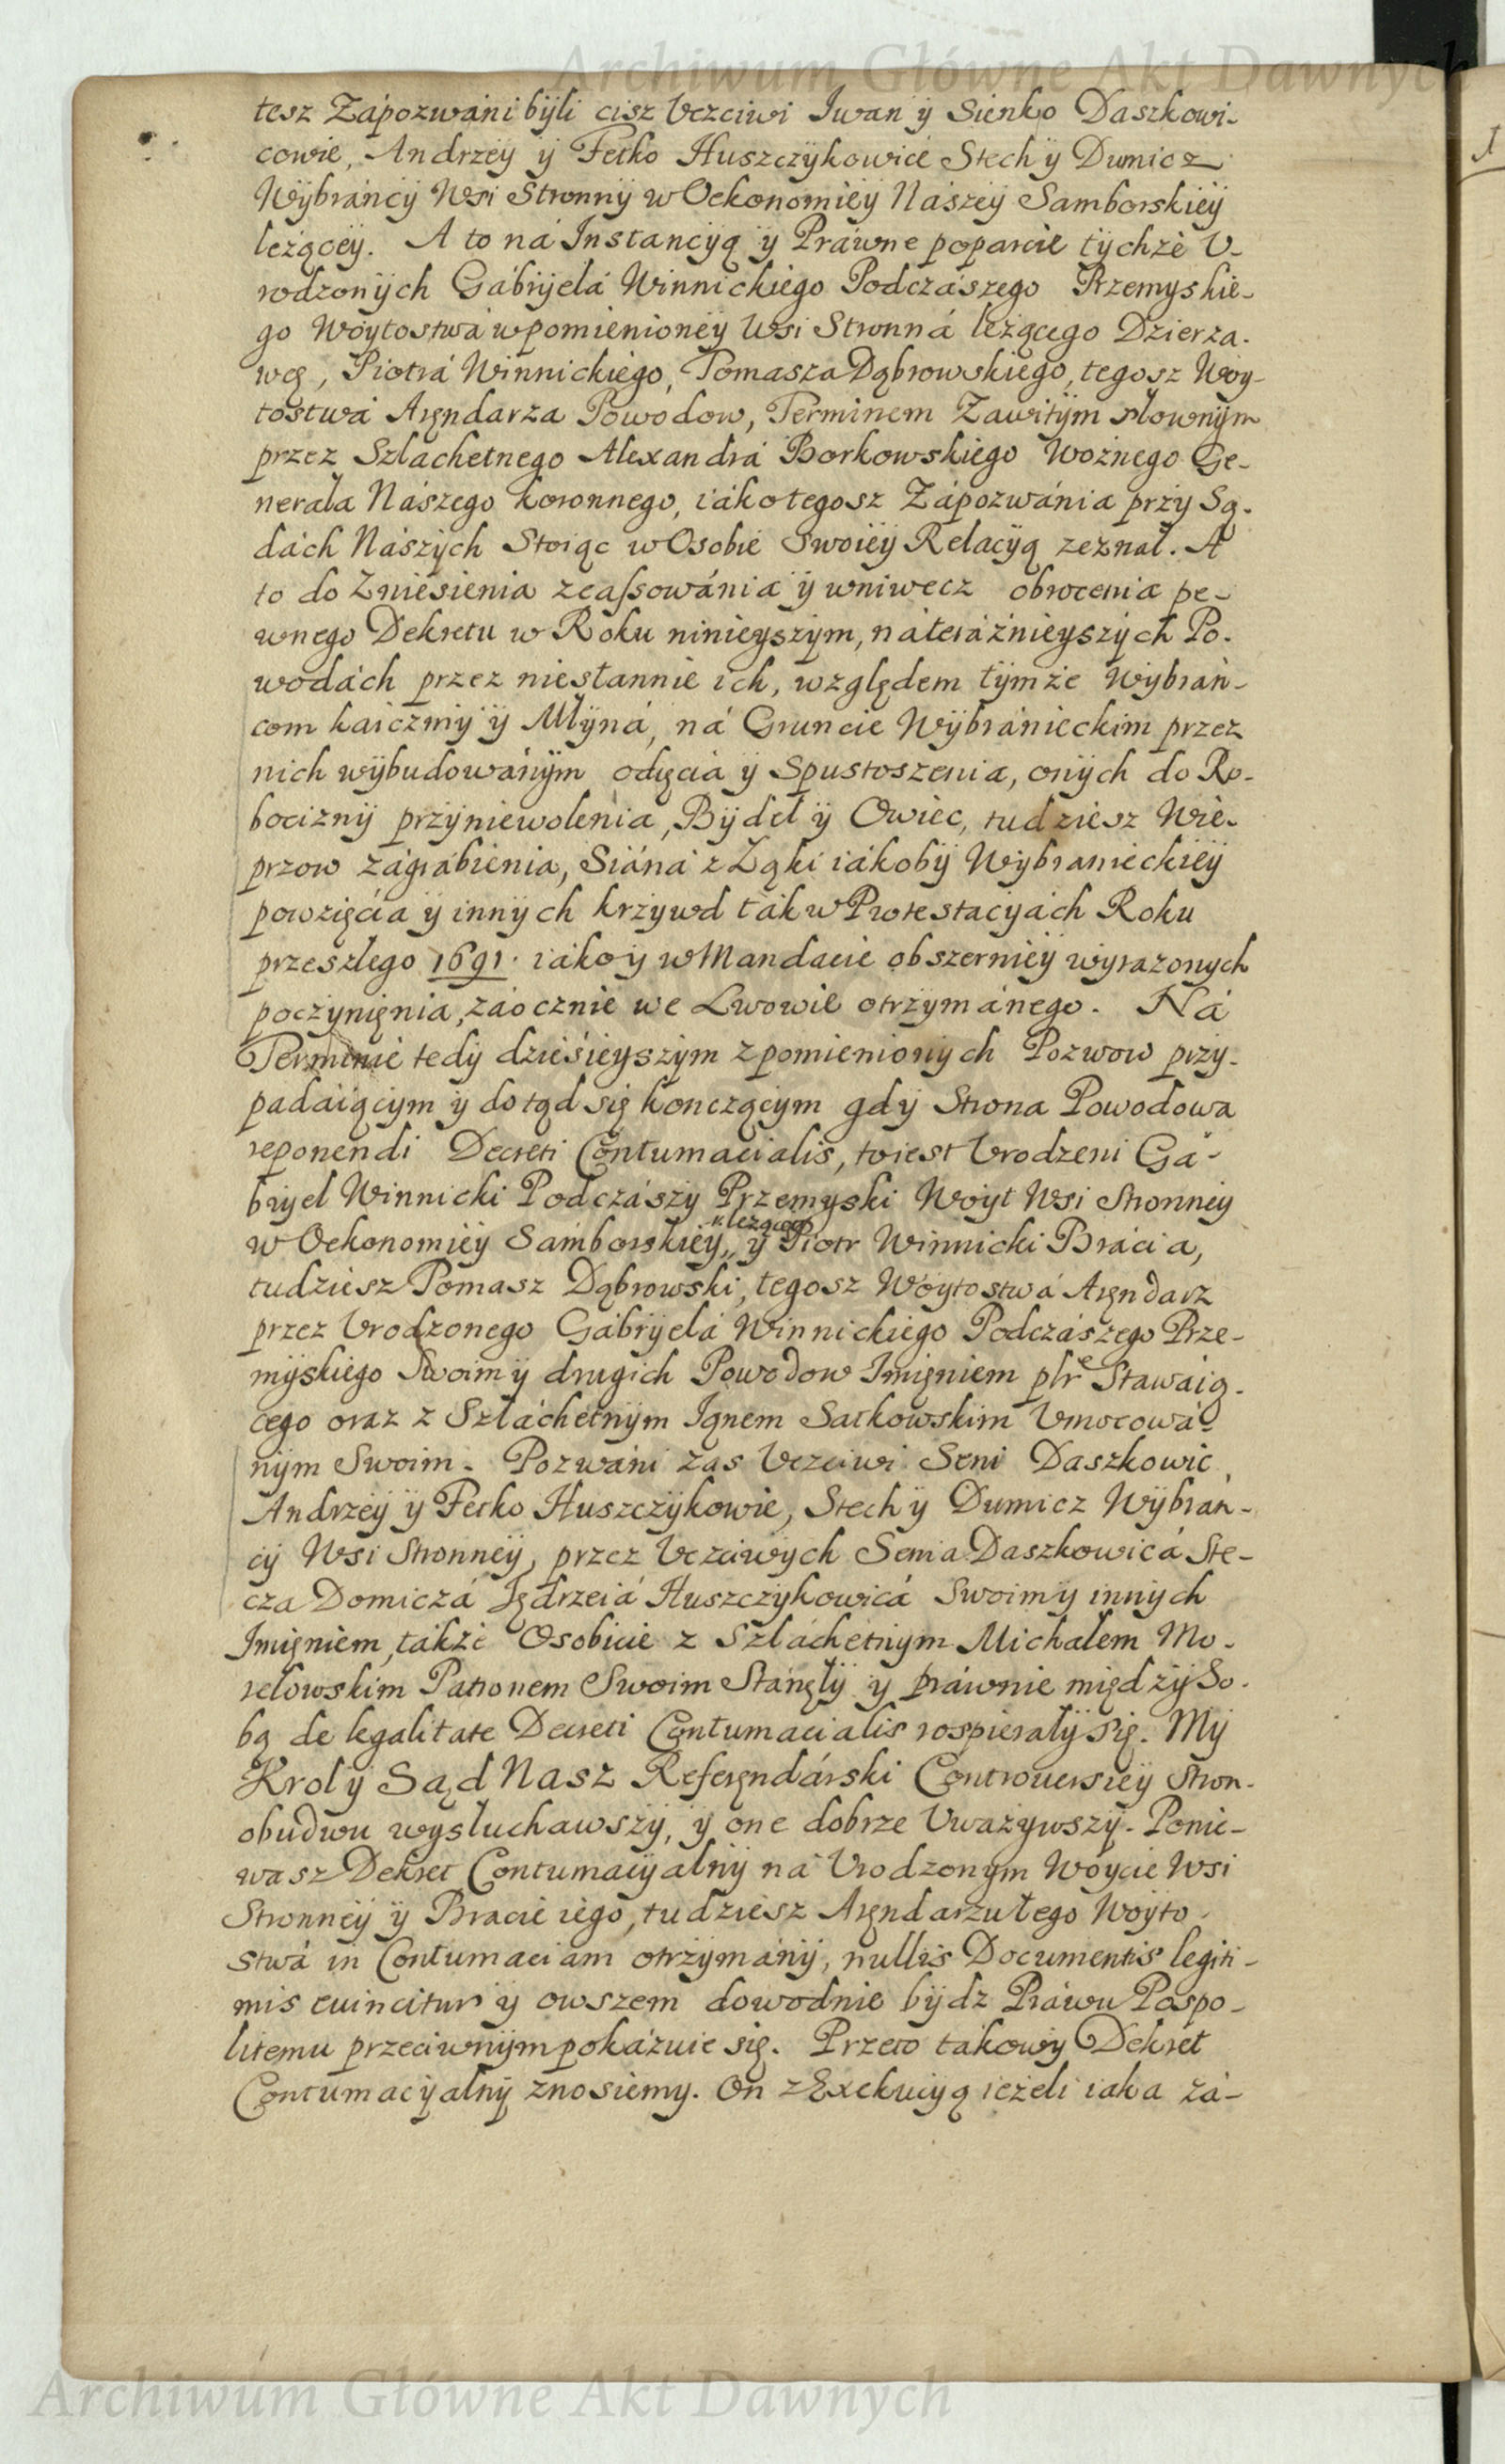 Archiwum Główne Akt Dawnych
tesz Zápozwáni byli cisz Vczciwi Iwan ÿ Sienko Daszkowi-
cowie, Andrzeÿ ÿ Fetko Huszczÿkowicé Stech ÿ Dumicz
Wÿbráncÿ Wsi Stronnÿ w Oekonomiéÿ Nászeÿ Samborskiéÿ
leżąceÿ. A to ná Instancÿą ÿ Práwne poparcié tÿchże V-
rodzonÿch Gábrÿelá Winnickiégo Podczászego Przemyskié-
go Woÿtostwá w pomienioneÿ Wsi Stronná leżącego Dzierża-
wcę, Piotrá Winnickiégo, Tomasza Dąbrowskiégo, tegosz Woÿ-
tostwá Aręndarza Powodow, Terminem Zawitÿm słownÿm
przez Szlachetnego Alexandrá Borkowskiégo Woźnego Ge-
nerała Nászego Koronnego, iáko tegosz Zápozwánia przÿ Są-
dách Nászÿch Stoiąc w Osobié Swoiéÿ Relacÿą zeznał. A
to do Zniésienia zcassowánia ÿ wniwecz obrocenia pe-
wnego Dekretu w Roku ninieÿszÿm, ná teráźnieÿszÿch Po-
wodách przez niestannié ich, względem tÿmże Wÿbrán-
com karczmÿ ÿ Młÿná, ná Gruncie Wÿbránieckim przez
nich wÿbudowánÿm odięciá ÿ Spustoszenia, onÿch do Ro-
bociznÿ przÿniewolenia, Bÿdeł ÿ Owiec, tudziesz Wié-
przow zágrábienia, Siáná z Łąki iákobÿ Wÿbranieckiéÿ
powzięcia ÿ innÿch krzÿwd ták w Protestacÿách Roku
przeszłego 1691. iáko ÿ w Mandacie obszerniéÿ wÿrażonych
poczÿnięnia, záocznié we Lwowié otrzÿmánego. Ná
Terminié tedÿ dziśieÿszÿm z pomienionÿch Pozwow przÿ-
padáiącÿm ÿ dotąd się kończącÿm gdÿ Strona Powodowa
reponendi Decreti Contumacialis, to iest Vrodzeni Gá-
brÿel Winnicki Podczászÿ Przemyski Woÿt Wsi Stronneÿ
w Oekonomiéÿ Sámborskiéÿ, ÿ Piotr Winnicki Brácia,
leżącego
tudziesz Tomasz Dąbrowski, tegosz Woÿtostwá Aręndarz
przez Vrodzonego Gábrÿelá Winnickiégo Podczászego Prze-
mÿskiego Swoim ÿ drugich Powodow Imięniem plre Stawaią-
cego oraz z Szláchetnÿm Ignem Satkowskim Vmocowá-
nÿm Swoim. Pozwáni zas Vczciwi Seni Daszkowic,
Andrzeÿ ÿ Fetko Huszczÿkowie, Stech ÿ Dumicz Wÿbran-
cÿ Wsi Stronneÿ, przez Vczciwÿch Senia Daszkowicá Ste-
cza Domiczá Jędrzeiá Huszczÿkowicá Swoim ÿ innÿch
Imięniem, tákże Osobiśie z Szláchetnÿm Michałem Mo-
relowskim Patronem Swoim Stánęłÿ ÿ práwnie międzÿ So-
bą de legalitate Decreti Contumacialis rospierałÿ się. Mÿ
Krol ÿ Sąd Nasz Referęndárski Controuersiéÿ Stron
obudwu wysłuchawszÿ, ÿ one dobrze Vważÿwszÿ. Ponie-
wasz Dekret Contumacÿalnÿ ná Vrodzonym Wóÿcie Wsi
Stronneÿ ÿ Bracie iego, tudziesz Aręndarzu tego Woÿto-
stwá in Contumaciam otrzÿmánÿ, nullis Documentis legiti-
mis euincitur ÿ owszem dowodnié bÿdz Práwu Pospo-
litemu przeciwnÿm pokázuie się. Przeto takowÿ Dekret
Contumacÿalnÿ znosiemy. On z Exekucÿą ieżeli iaka zá-
Archiwum Główne Akt Dawnych